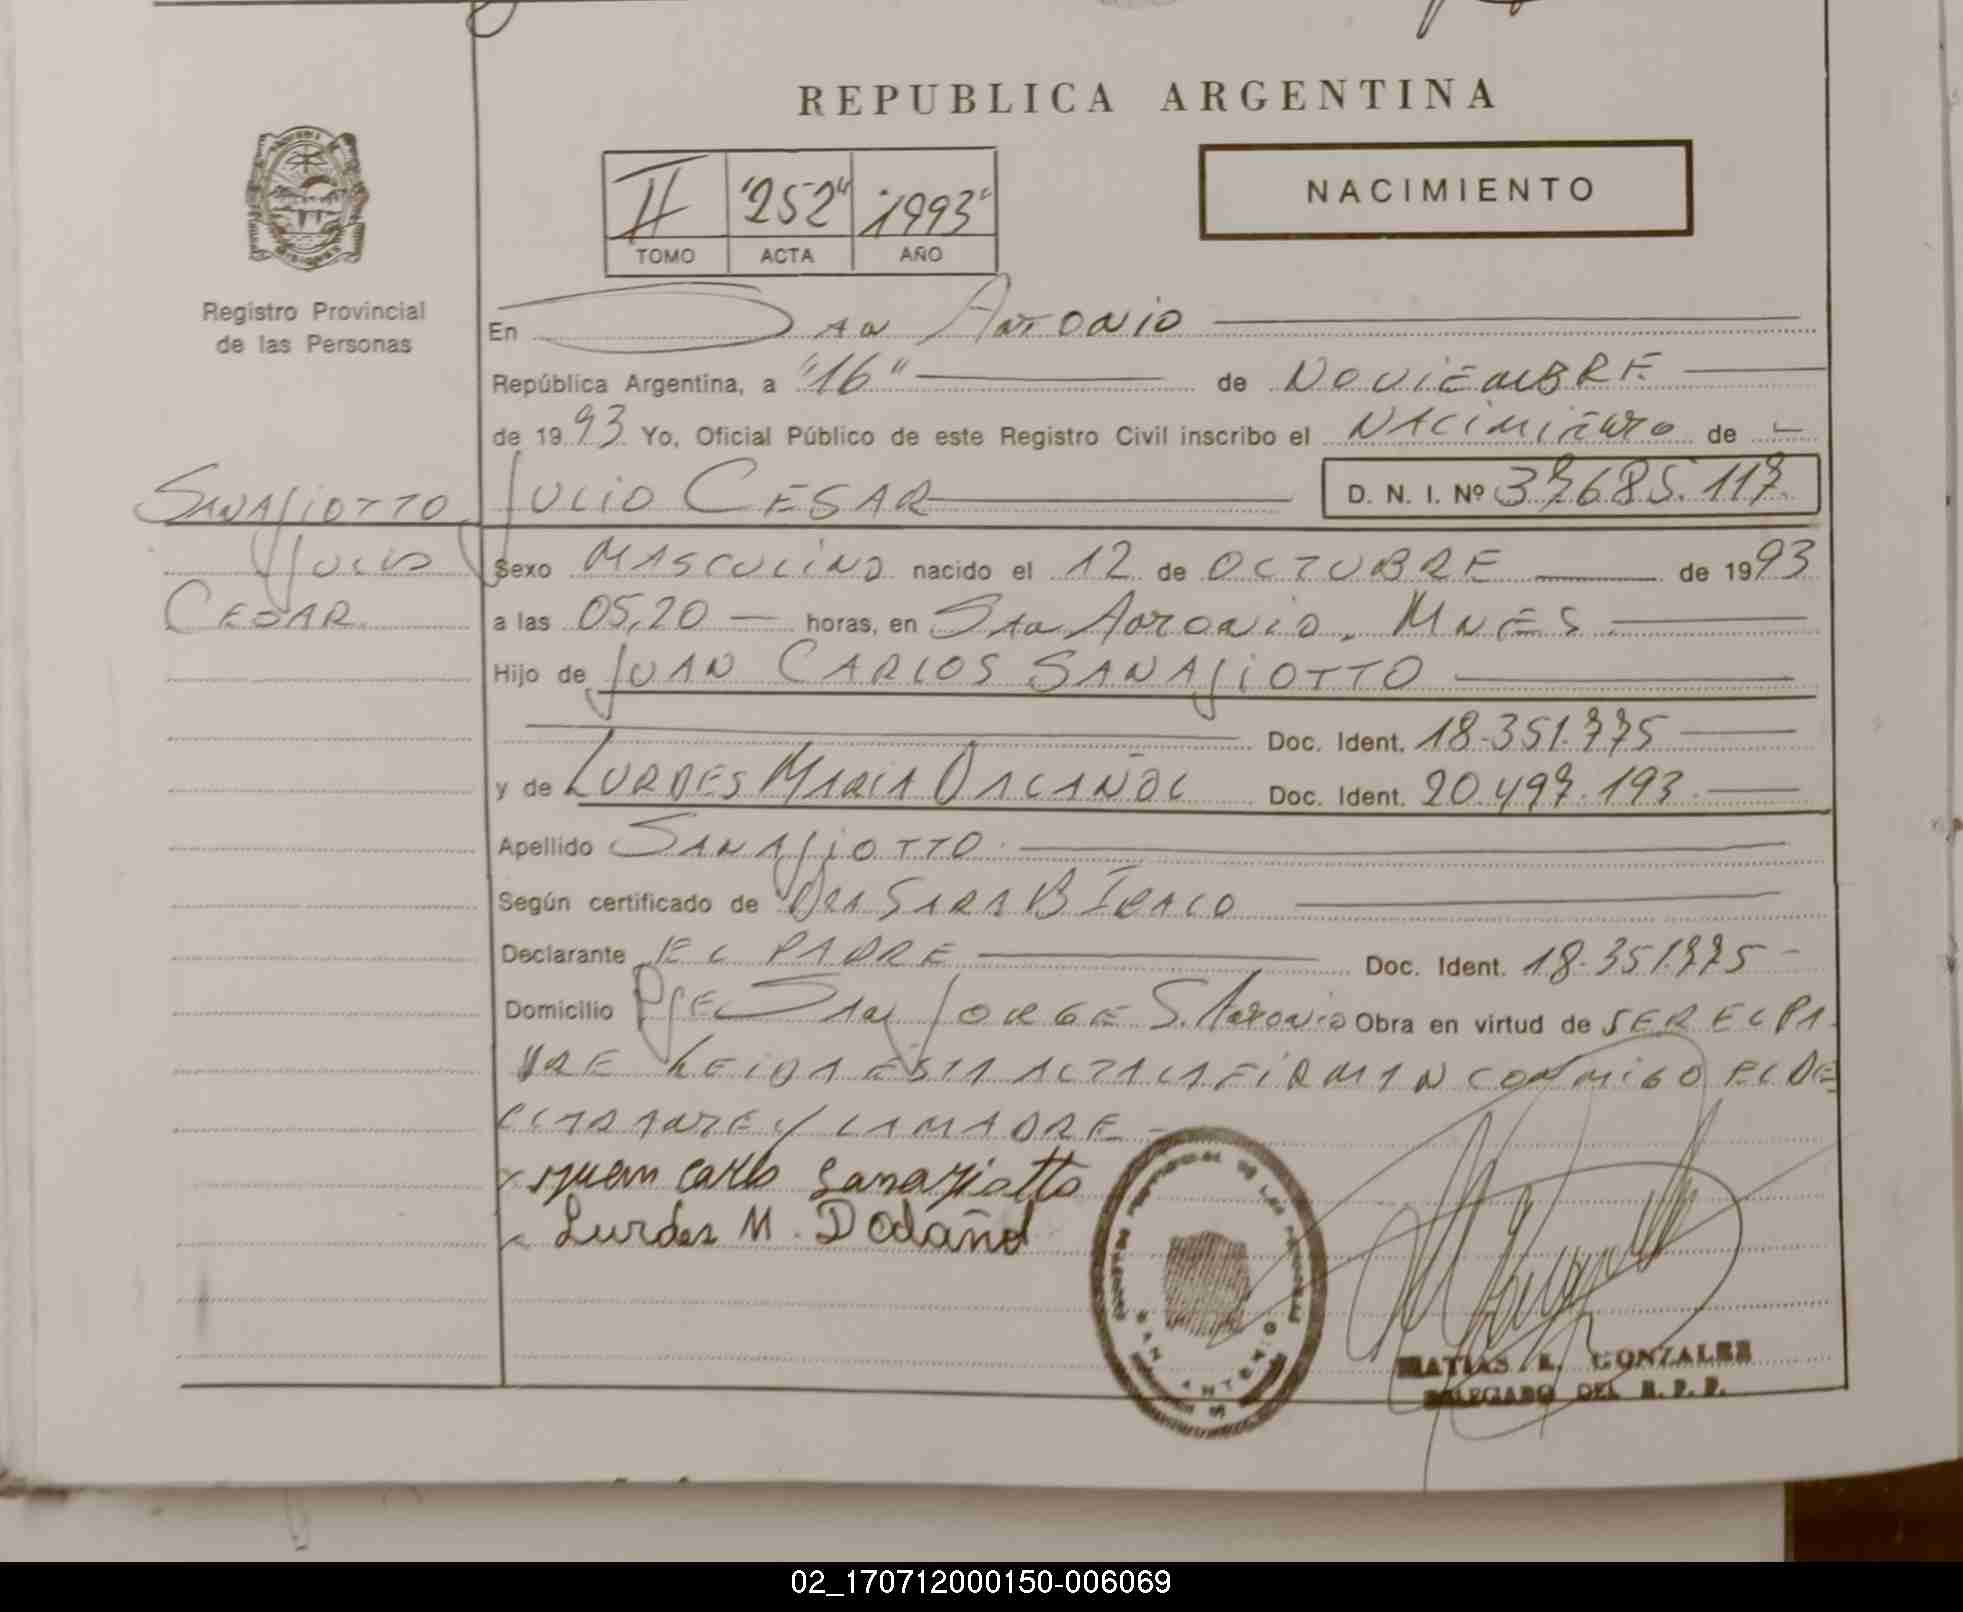 REPUBLICA ARGENTINA
NACIMIENTO
II "252" "1993"
TOMO ACTA AÑO
Registro Provincial
de las Personas
En San Antonio
República Argentina, a "16" de NOVIEMBRE
de 1993 Yo, Oficial Público de este Registro Civil inscribo el NACIMIENTO de
SANAGIOTTO JULIO CESAR D. N. I. Nº 37685.117
JULIO
CESAR
Sexo MASCULINO nacido el 12 de OCTUBRE de 1993
a las 05,20 horas, en San Antonio. MNES
Hijo de JUAN CARLOS SANAGIOTTO
Doc. Ident. 18.351.775
y de LURDES MARIA Doc. Ident. 20.497.193
Apellido SANAGIOTTO
Según certificado de DRA SARA B
Declarante EL PADRE Doc. Ident. 18.351775
Domicilio Pje SAN JORGE S. Antonio Obra en virtud de SER EL PA
DRE LEIDA ESTA ACTA LA FIRMAN CONMIGO EL DE
CLARANTE Y LA MADRE
Juan Carlo Sanagiotto
Lurdes M.
MATIAS R. GONZALEZ
DELEGADO DEL R. P. P.
02_170712000150-006069